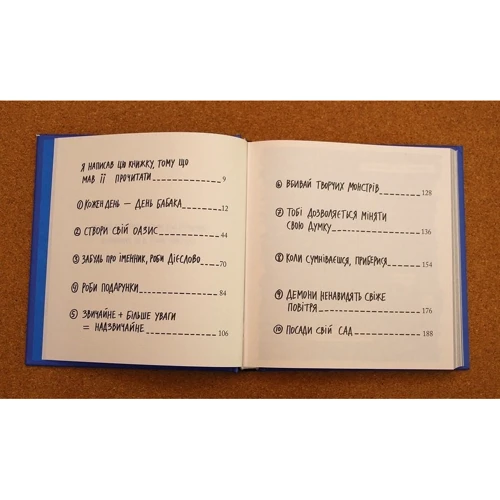 Я НАПИСАВ ЦЮ КНИЖКУ, ТОМУ ЩО
МАВ ЇЇ ПРОЧИТАТИ 9
1 КОЖЕН ДЕНЬ — ДЕНЬ БАБАКА 12
2 СТВОРИ СВІЙ ОАЗИС 44
3 ЗАБУДЬ ПРО ІМЕННИК, РОБИ ДІЄСЛОВО 70
4 РОБИ ПОДАРУНКИ 84
5 ЗВИЧАЙНЕ + БІЛЬШЕ УВАГИ
= НАДЗВИЧАЙНЕ 106
6 ВБИВАЙ ТВОРЧИХ МОНСТРІВ 128
7 ТОБІ ДОЗВОЛЯЄТЬСЯ МІНЯТИ
СВОЮ ДУМКУ 136
8 КОЛИ СУМНІВАЄШСЯ, ПРИБЕРИСЯ 154
9 ДЕМОНИ НЕНАВИДЯТЬ СВІЖЕ
ПОВІТРЯ 176
10 ПОСАДИ СВІЙ САД 188